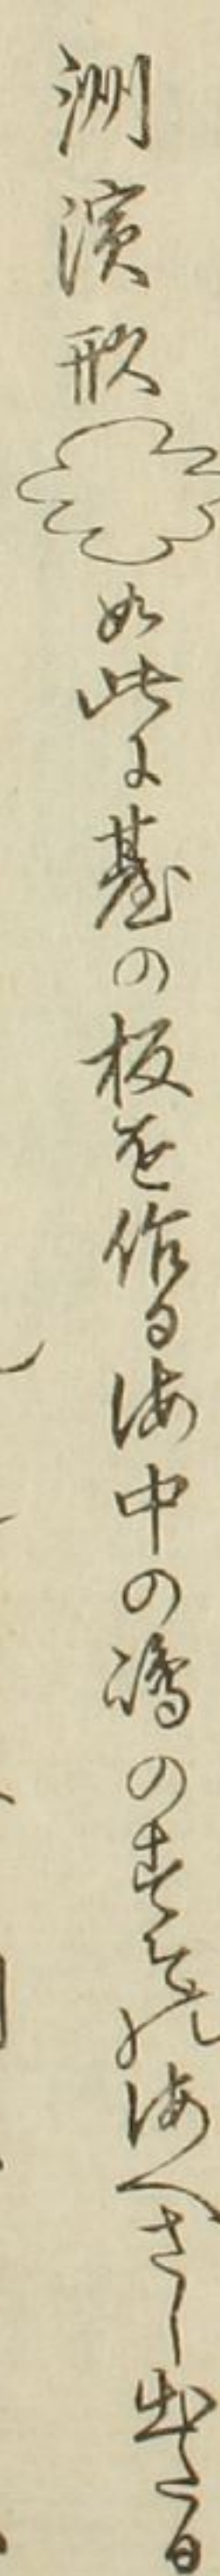 洲濱形如此に臺の板を作る海中の嶋のすその海へさし出たる